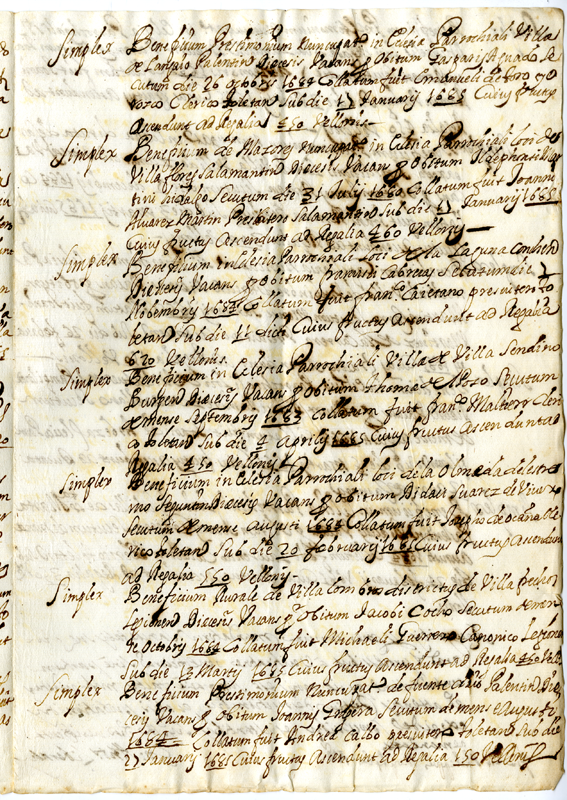 Simplex Beneficium Prestimonium nuncupat in Eclesia Parrochiali Villa
de Palentin Diocesis Vacans p obitum Gasparis Aguado Se
cutum die 26 octobris 1684 Collatum fuit Emanueli de toro
Clerico toletan Sub die 17 January 1685 Cuius fructus
Ascendunt ad Regalia 450 Vellonis
Simplex Beneficium de nuncupat in Eclesia Parrochiali loci de
Villaflores Salamantin Diocesis Vacans p obitum
Secutum die 31 July 1680 Collatum fuit Joanni
Alvarez Martin Presbitero Salamantin Sub die 11 January 1685
Cuius fructus Ascendunt ad Regalia 460 Vellonys
Simplex Beneficium in Eclesia Parrochiali loci de la Laguna Conchen
Diocesis Vacans p obitum francisci Cabreias Secutum die 7
Nobembrys 1684 Collatum fuit franco Caietano presvitero to
letan Sub die 11 dicti Cuius fructus Ascendunt ad Regalia
620 Vellonis
Simplex Beneficium in Eclesia Parrochiali Villa de Villa Sendino
Burgen Diocesis Vacans p obitum thome de Secutum
de mense Septembrys 1683 Collatum fuit franco Cleri
co toletan Sub die 4 Aprilis 1685 Cuius fructus Ascendunt ad
Regalia 450 Vellonys
Simplex Beneficium in Eclesia Parrochiali loci de la Olmeda del estre
mo Seguntin Diocesis Vacans p obitum Didaci Suarez de
Secutum de mense Augusti 1684 Collatum fuit Josepho de ocaña Cle
rico toletan Sub die 20 february 1685 Cuius fructus Ascendunt
ad Regalia 550 Vellonys
Simplex Beneficium Rurale de Villa districtus de Villa
Legionen Diocesis Vacans p obitum Jacobi Secutum de mense
de Octobrys 1684 Collatum fuit Michaeli Guerrero Canonico
Sub die 13 Marty 1685 Cuius fructus Ascendunt ad Regalia 460
Simplex Beneficium Prestimonium nuncupat de fuente Palentin Dio
cesis Vacans p obitum Joannis Secutum de mense Augusti
1684 Collatum fuit Andrea Calbo presvitero toletano Sub die
27 January 1685 Cuius fructus Ascendunt ad Regalia 150 Vellonis